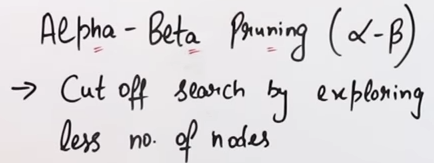 Alpha - Beta Pruning (α-β)
→ Cut off search by exploring
less no. of nodes